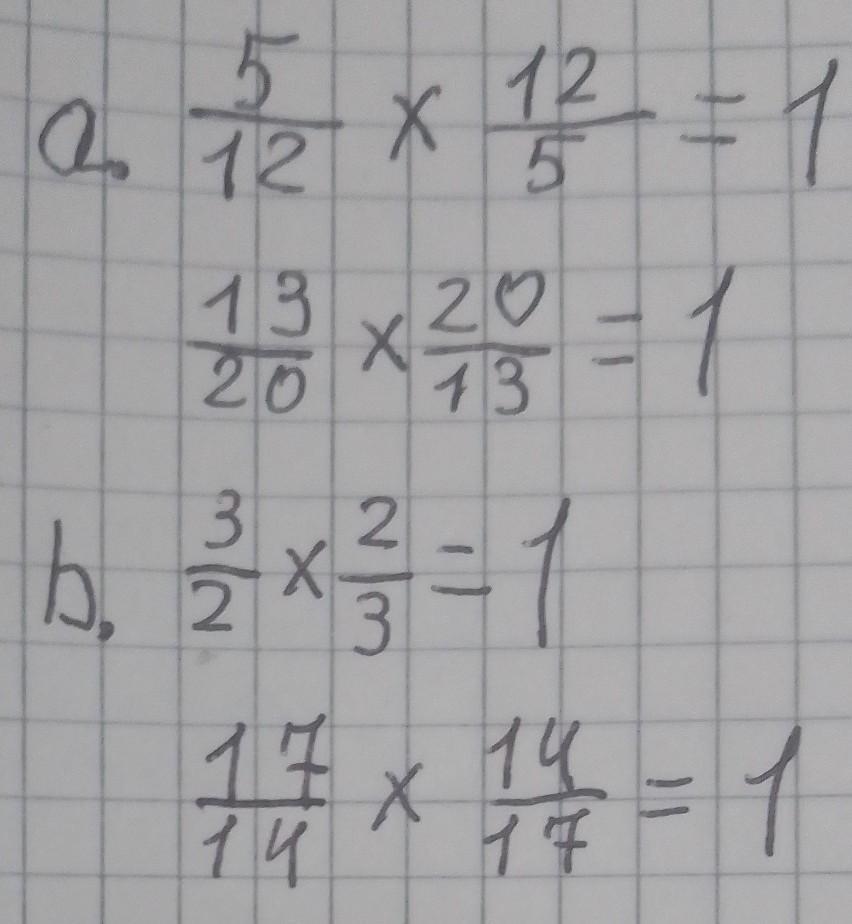 a. 5/12 × 12/5 = 1
13/20 × 20/13 = 1
b. 3/2 × 2/3 = 1
17/14 × 14/17 = 1